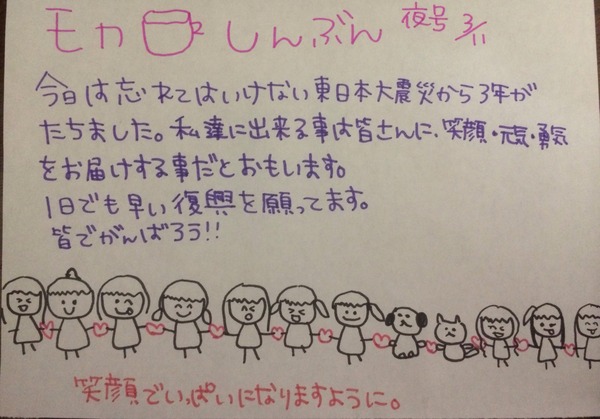 モカしんぶん 夜号 3/11
今日は忘れてはいけない東日本大震災から3年が
たちました。私達に出来る事は皆さんに、笑顔・元気・勇気
をお届けする事だとおもいます。
1日でも早い復興を願ってます。
皆でがんばろう!!
笑顔でいっぱいになりますように。